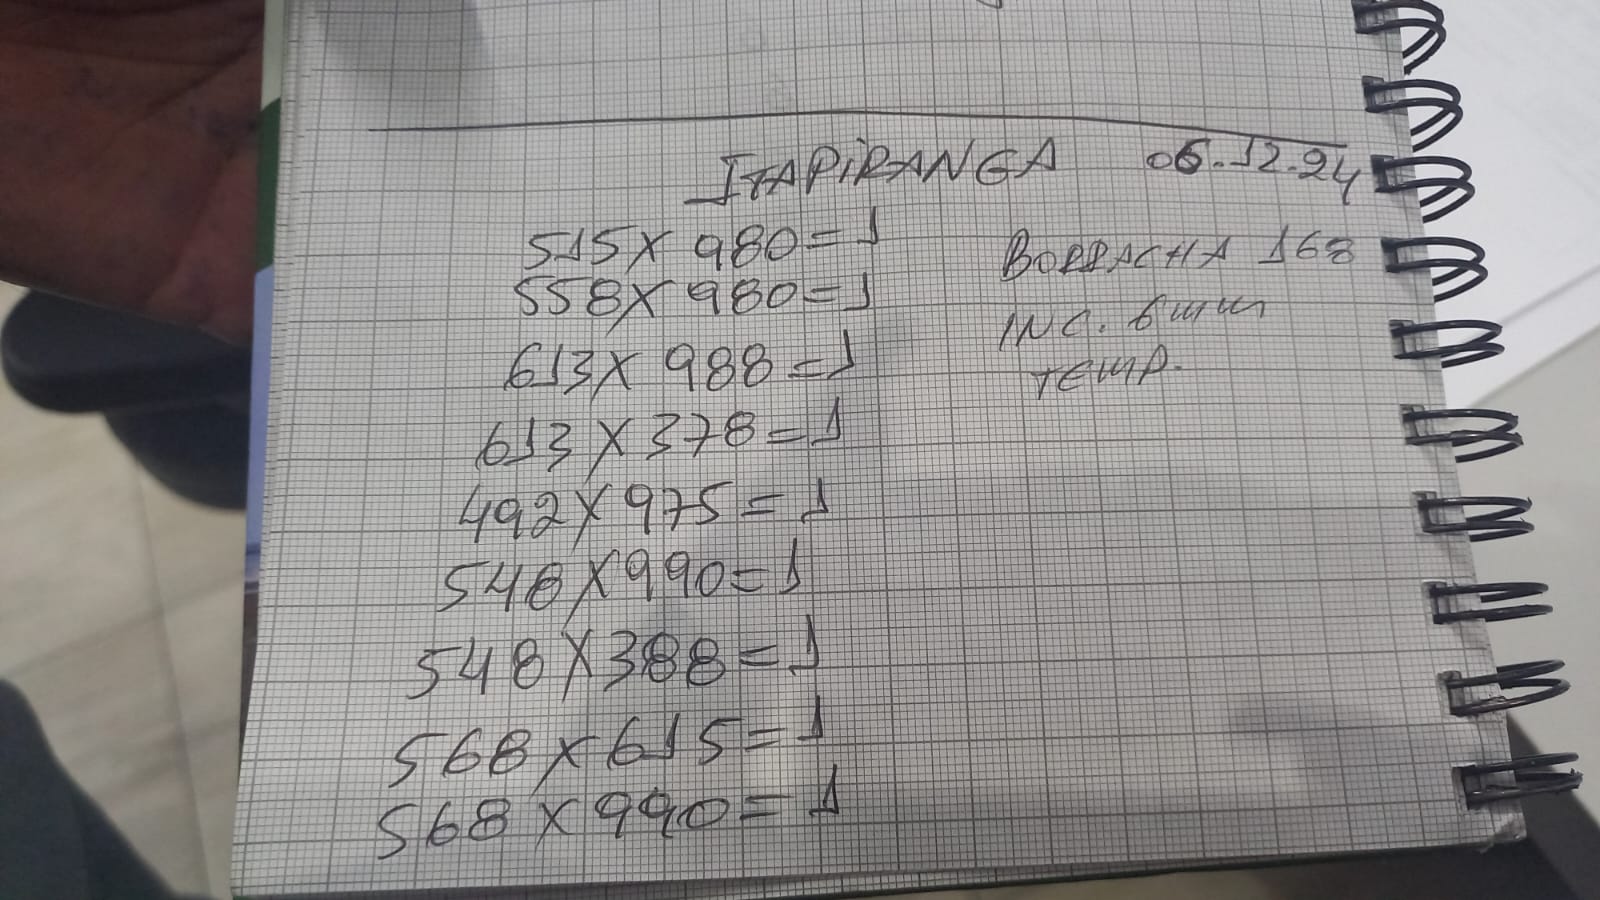 ITAPIRANGA 06.12.24
515X 980=1
BORRACHA 168
558X980=1
INC. 6mm
613X 988=1
TEMP.
613X378=1
492X975=1
548X990=1
548X388=1
568X615=1
568X990=1